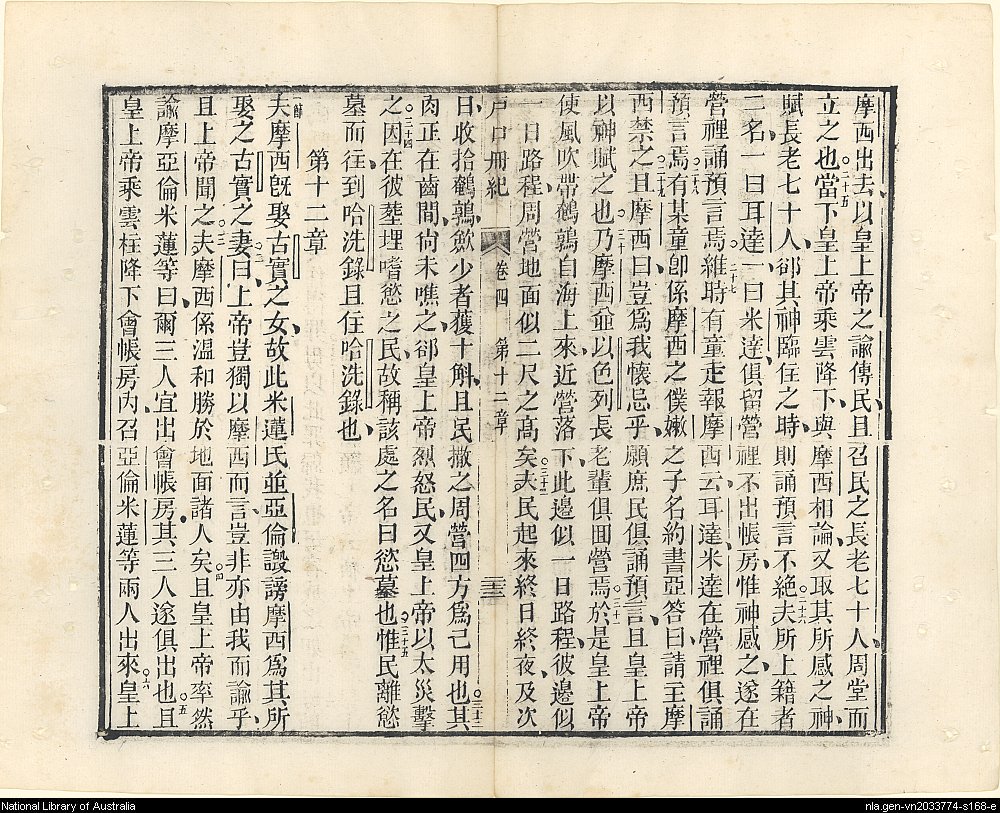 摩西出去以皇上帝之諭傳民且召民之長老七十人周堂而
立之也○二十五當下皇上帝乘雲降下與摩西相論又取其所感之神
賦長老七十人郤其神臨在之時則誦預言不絕○二十六夫所上籍者
二名一曰耳達一曰米達俱留營裡不出帳房惟神感之遂在
營裡誦預言焉○二十七維時有童走報摩西云耳達米達在營裡俱誦
預言焉○二十八有某童卽係摩西之僕嫩之子名約書亞答曰請主摩
西禁之○二十九且摩西曰豈爲我懷忌乎願庶民俱誦預言且皇上帝
以神賦之也○三十乃摩西並以色列長老輩俱回營焉○三十一於是皇上帝
使風吹帶鵪鶉自海上來近營落下此邊似一日路程彼邊似
一日路程周營地面似二尺之高矣○三十二夫民起來終日終夜及次
戶口冊紀 卷四 第十二章 三十三
日收拾鵪鶉歛少者獲十斛且民撒之周營四方爲己用也○三十三其
肉正在齒間尙未噍之郤皇上帝烈怒民又皇上帝以太災擊
之○三十四因在彼塟埋嗜慾之民故稱該處之名曰慾墓也○三十五惟民離慾
墓而往到哈洗錄且住哈洗錄也
第十二章
一節夫摩西旣娶古實之女故此米蓮氏並亞倫譭謗摩西爲其所
娶之古實之妻○二曰上帝豈獨以摩西而言豈非亦由我而諭乎
且上帝聞之○三夫摩西係溫和勝於地面諸人矣○四且皇上帝率然
諭摩亞倫米蓮等曰爾三人宜出會帳房其三人遂俱出也○五且
皇上帝乘雲柱降下會帳房內召亞倫米蓮等兩人出來○六皇上
National Library of Australia
nla.gen-vn2033774-s168-e